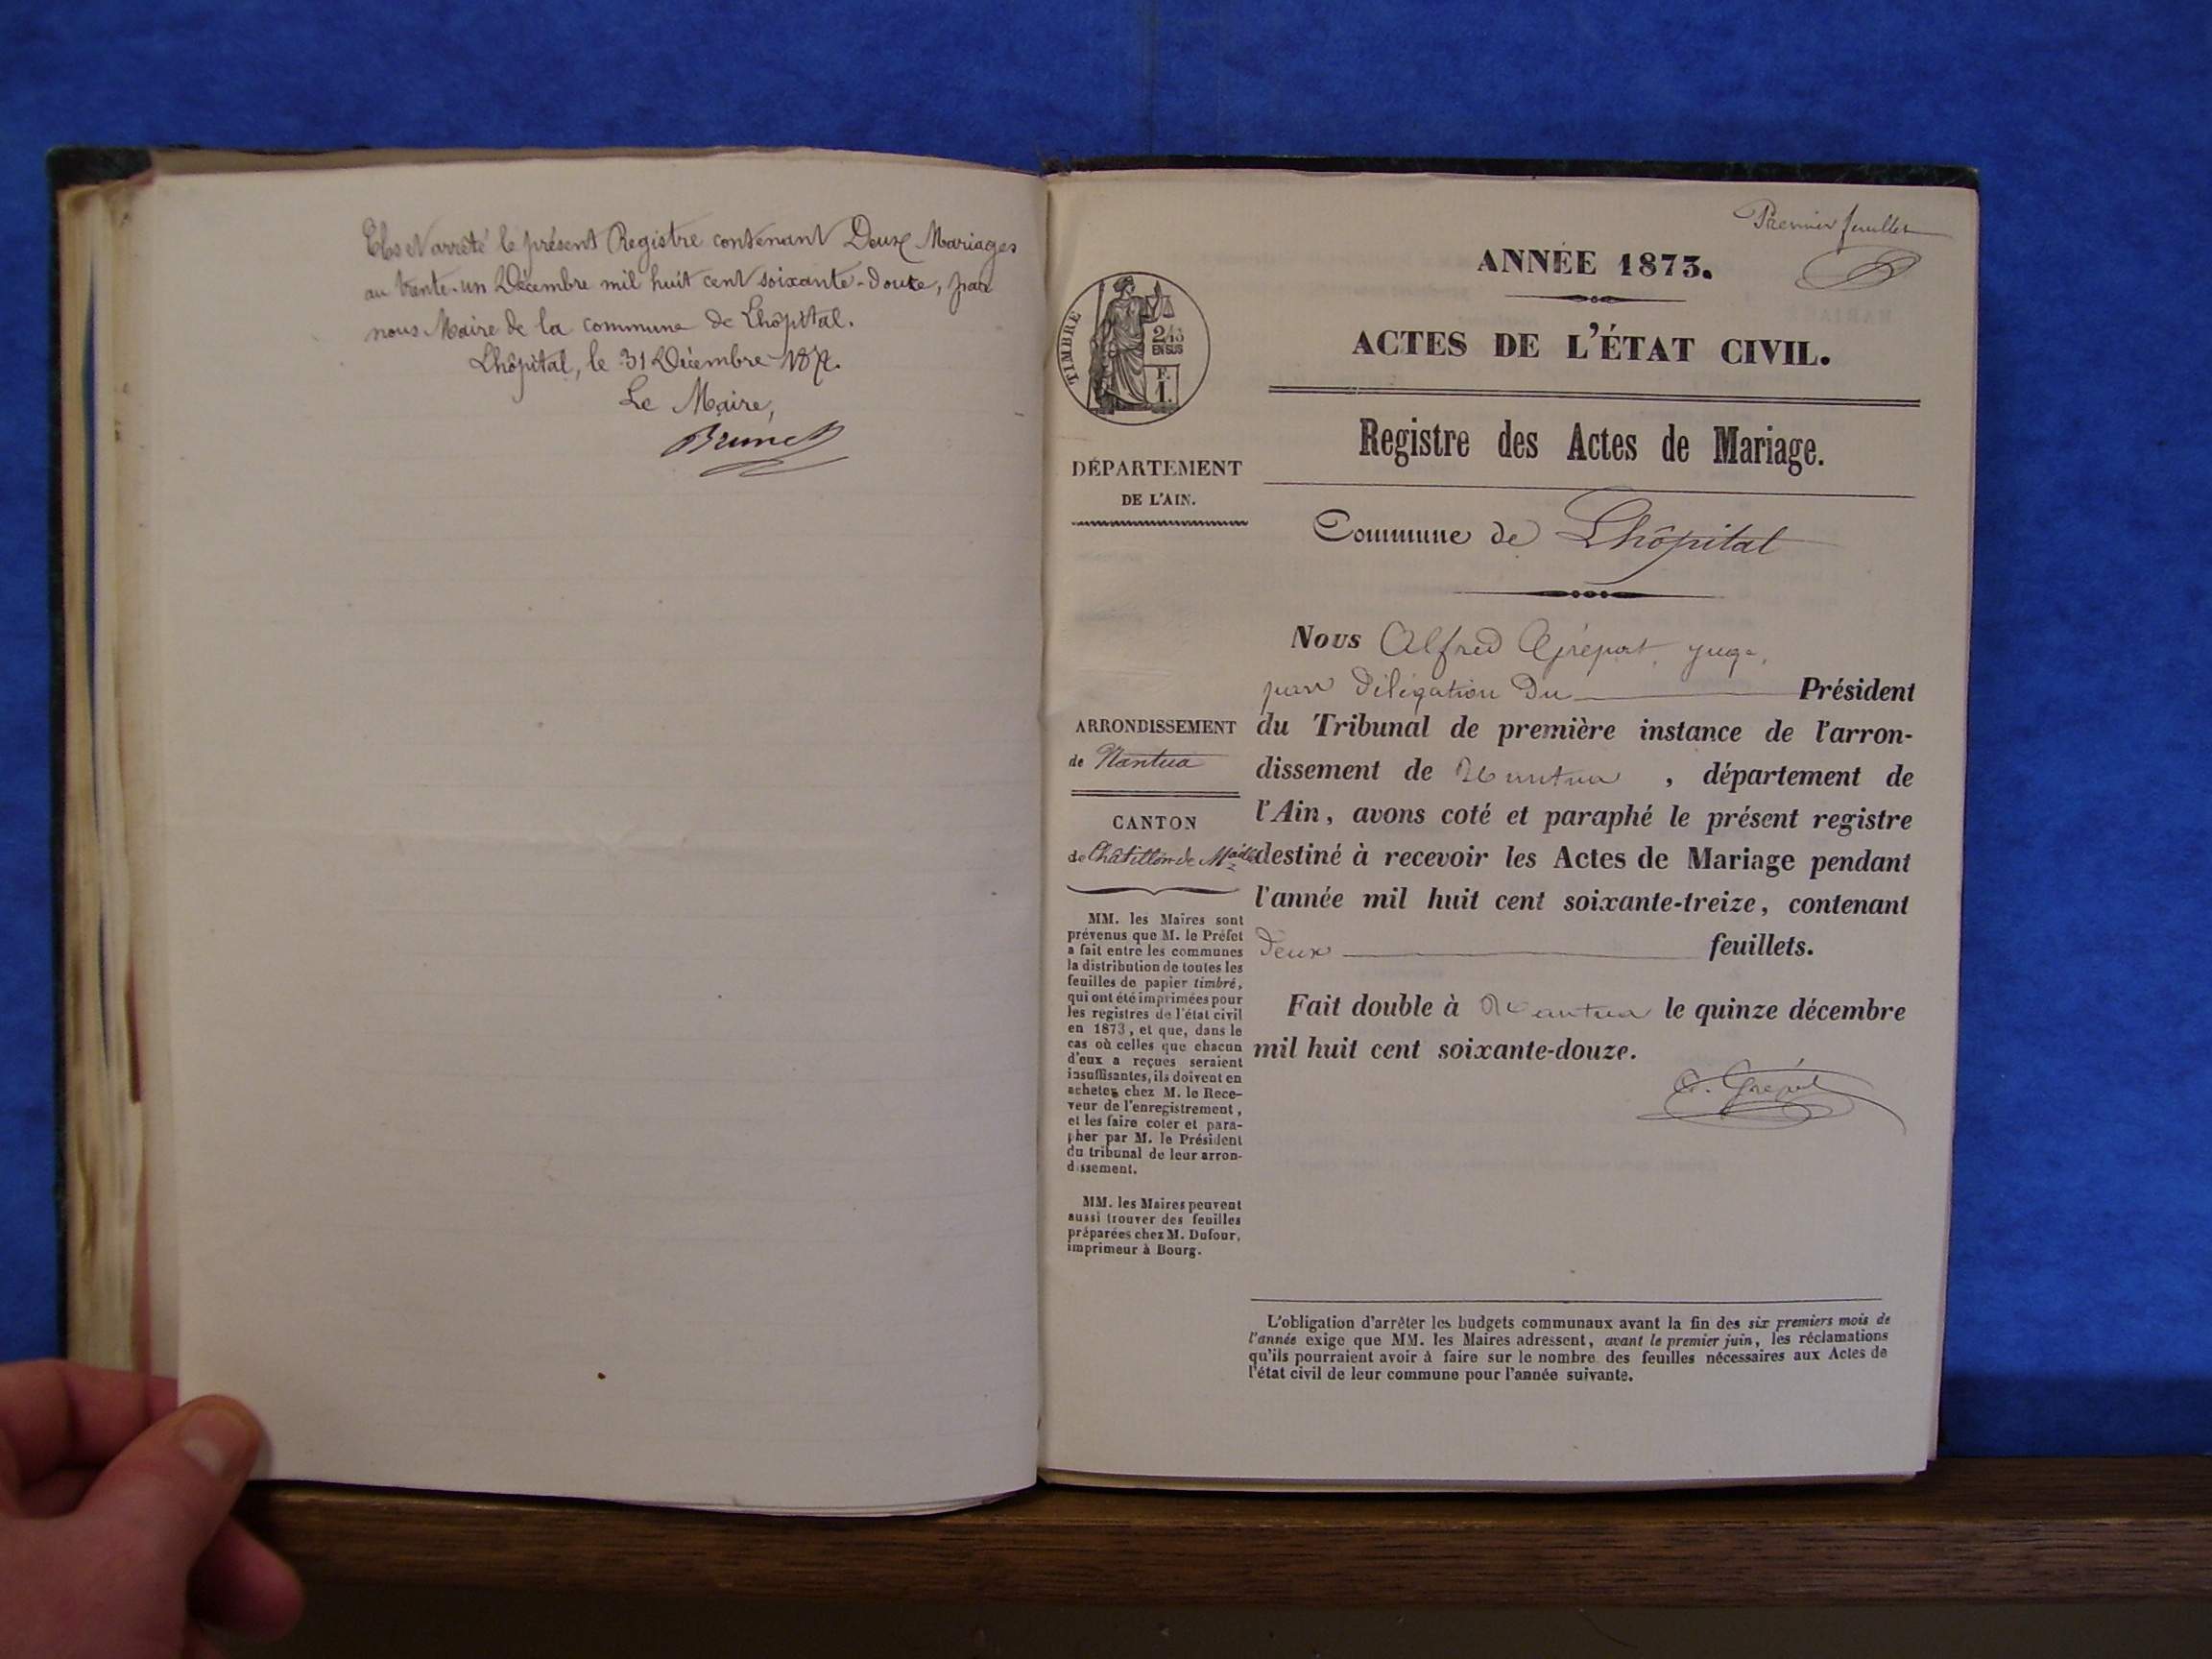 Clos et arrêté le présent Registre contenant Deux Mariages
au trente-un Décembre mil huit cent soixante-douze, par
nous Maire de la commune de Lhôpital.
Lhôpital, le 31 Décembre 1872.
Le Maire,
Brunet
Premier feuillet
ANNÉE 1873.
TIMBRE
2/10
EN SUS
F.
1.
ACTES DE L'ÉTAT CIVIL.
Registre des Actes de Mariage.
DÉPARTEMENT
DE L'AIN.
Commune de Lhôpital
ARRONDISSEMENT
de Nantua
CANTON
de Châtillon de Mlle
MM. les Maires sont
prévenus que M. le Préfet
a fait entre les communes
la distribution de toutes les
feuilles de papier timbré,
qui ont été imprimées pour
les registres de l'état civil
en 1873, et que, dans le
cas où celles que chacun
d'eux a reçues seraient
insuffisantes, ils doivent en
acheter chez M. le Rece-
veur de l'enregistrement,
et les faire coter et para-
pher par M. le Président
du tribunal de leur arron-
dissement.
MM. les Maires peuvent
aussi trouver des feuilles
préparées chez M. Dufour,
imprimeur à Bourg.
Nous Alfred Grépat, juge,
par délégation du Président
du Tribunal de première instance de l'arron-
dissement de Nantua, département de
l'Ain, avons coté et paraphé le présent registre
destiné à recevoir les Actes de Mariage pendant
l'année mil huit cent soixante-treize, contenant
deux feuillets.
Fait double à Nantua le quinze décembre
mil huit cent soixante-douze.
L'obligation d'arrêter les budgets communaux avant la fin des six premiers mois de
l'année exige que MM. les Maires adressent, avant le premier juin, les réclamations
qu'ils pourraient avoir à faire sur le nombre des feuilles nécessaires aux Actes de
l'état civil de leur commune pour l'année suivante.